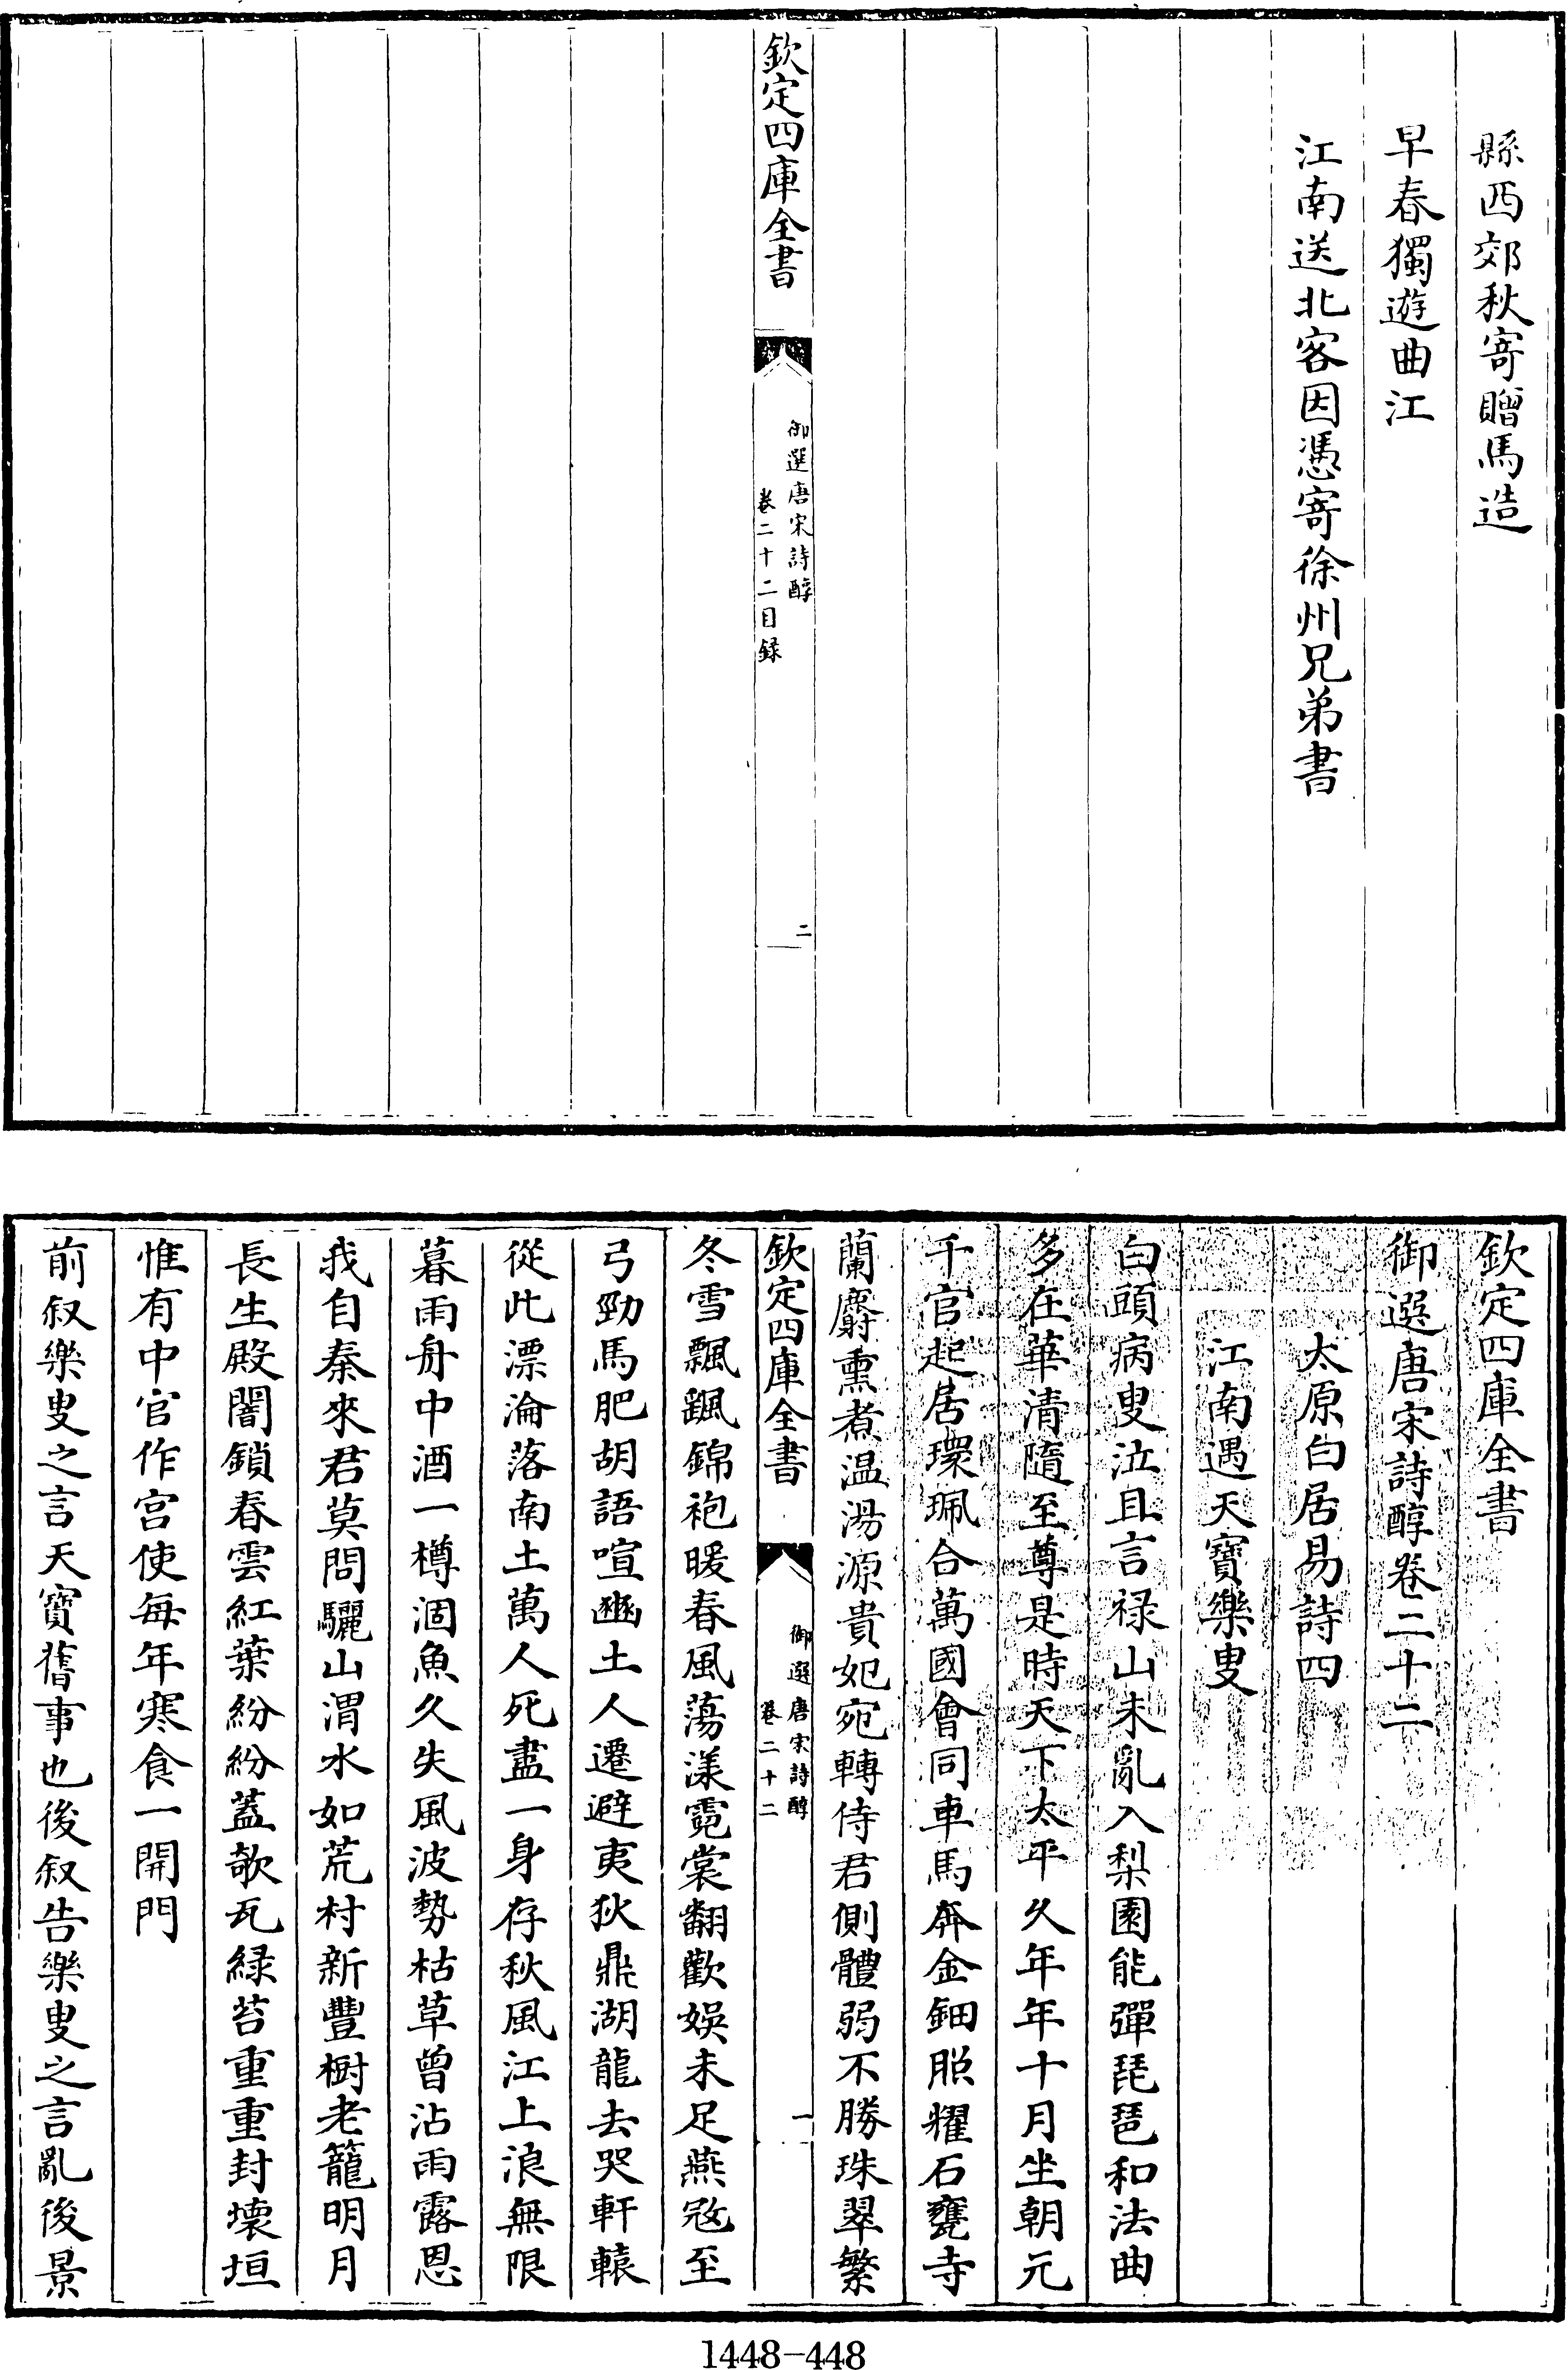 縣西郊秋寄贈馬造
早春獨遊曲江
江南送北客因憑寄徐州兄弟書
欽定四庫全書
御選唐宋詩醇
卷二十二目録
二
欽定四庫全書
御選唐宋詩醇卷二十二
太原白居易詩四
江南遇天寶樂叟
白頭病叟泣且言禄山未亂入梨園能彈琵琶和法曲
多在華清隨至尊是時天下太平久年年十月坐朝元
千官起居環珮合萬國會同車馬奔金鈿照耀石甕寺
蘭麝熏煮温湯源貴妃宛轉侍君側體弱不勝珠翠繁
欽定四庫全書
御選唐宋詩醇
卷二十二
一
冬雪飄颻錦袍暖春風蕩漾霓裳翻歡娛未足燕寇至
弓勁馬肥胡語喧豳土人遷避夷狄鼎湖龍去哭軒轅
從此漂淪落南土萬人死盡一身存秋風江上浪無限
暮雨舟中酒一樽涸魚久失風波勢枯草曾沾雨露恩
我自秦來君莫問驪山渭水如荒村新豐樹老籠明月
長生殿闇鎖春雲紅葉紛紛蓋欹瓦緑苔重重封壊垣
惟有中官作宫使每年寒食一開門
前叙樂叟之言天寶舊事也後叙告樂叟之言亂後景
1448-448